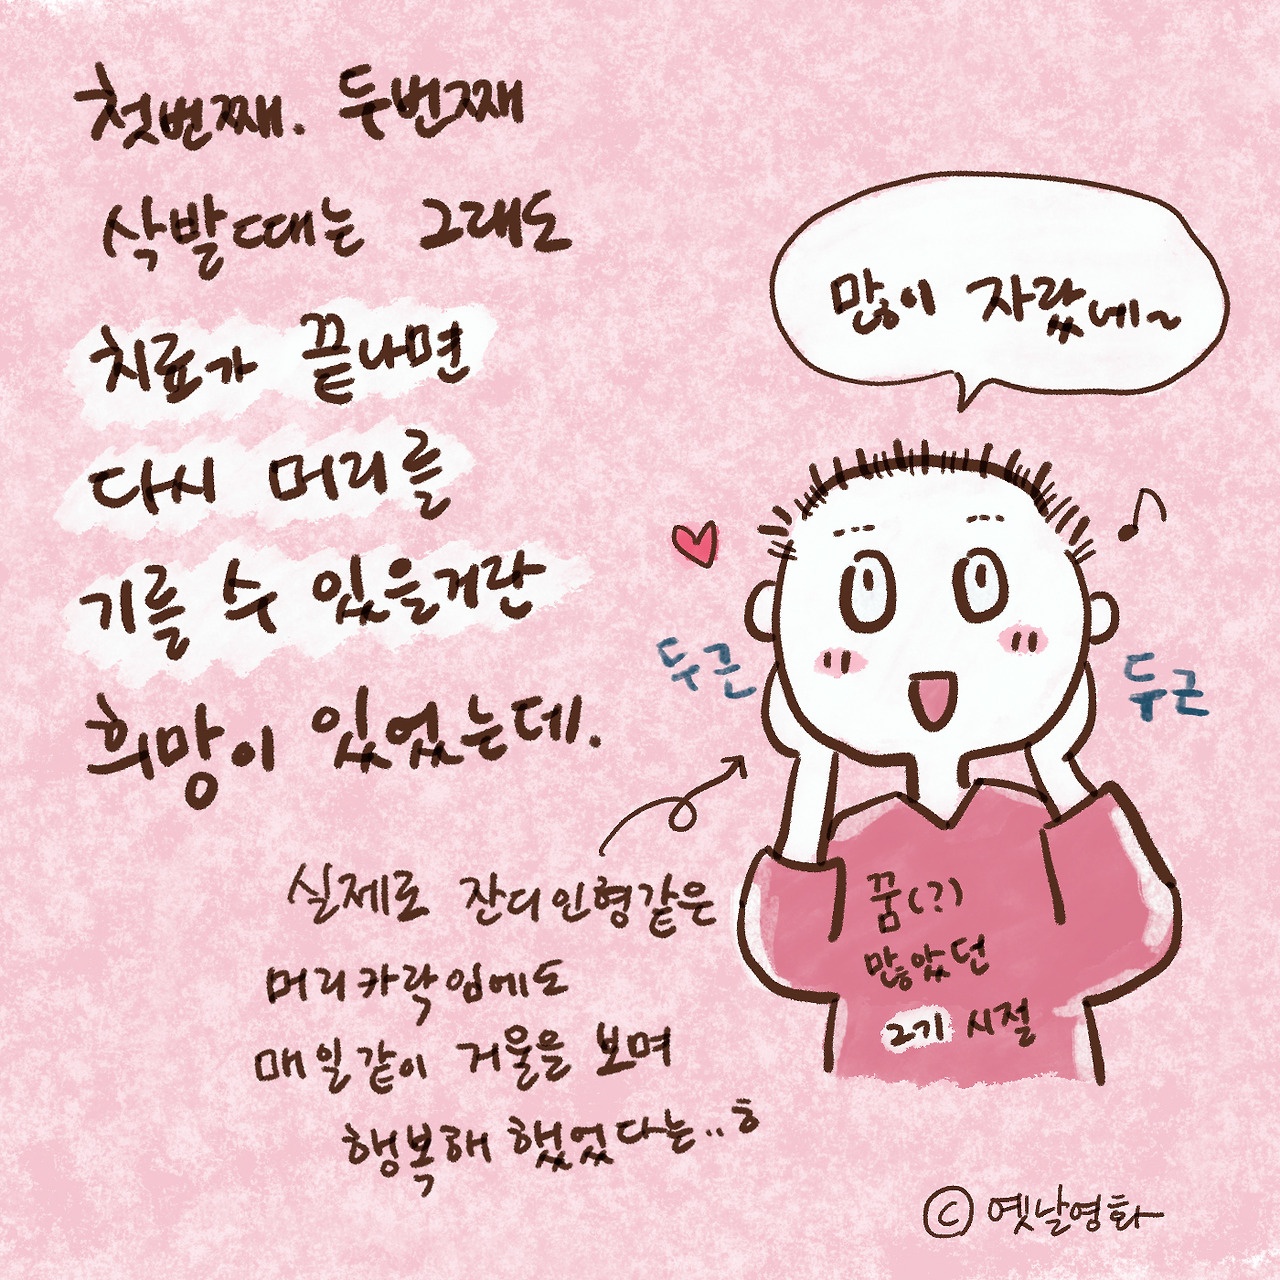 첫번째. 두번째
삭발때는 그래도
치료가 끝나면
다시 머리를
기를 수 있을거란
희망이 있었는데.
많이 자랐네~
두근
두근
실제로 잔디인형같은
머리카락임에도
매일같이 거울을 보며
행복해 했었다는..ㅎ
꿈(?)
많았던
2기 시절
© 옛날영화